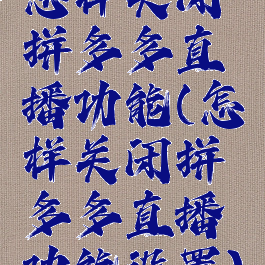 怎样关闭
拼多多直
播功能(怎
样关闭拼
多多直播
功能设置)